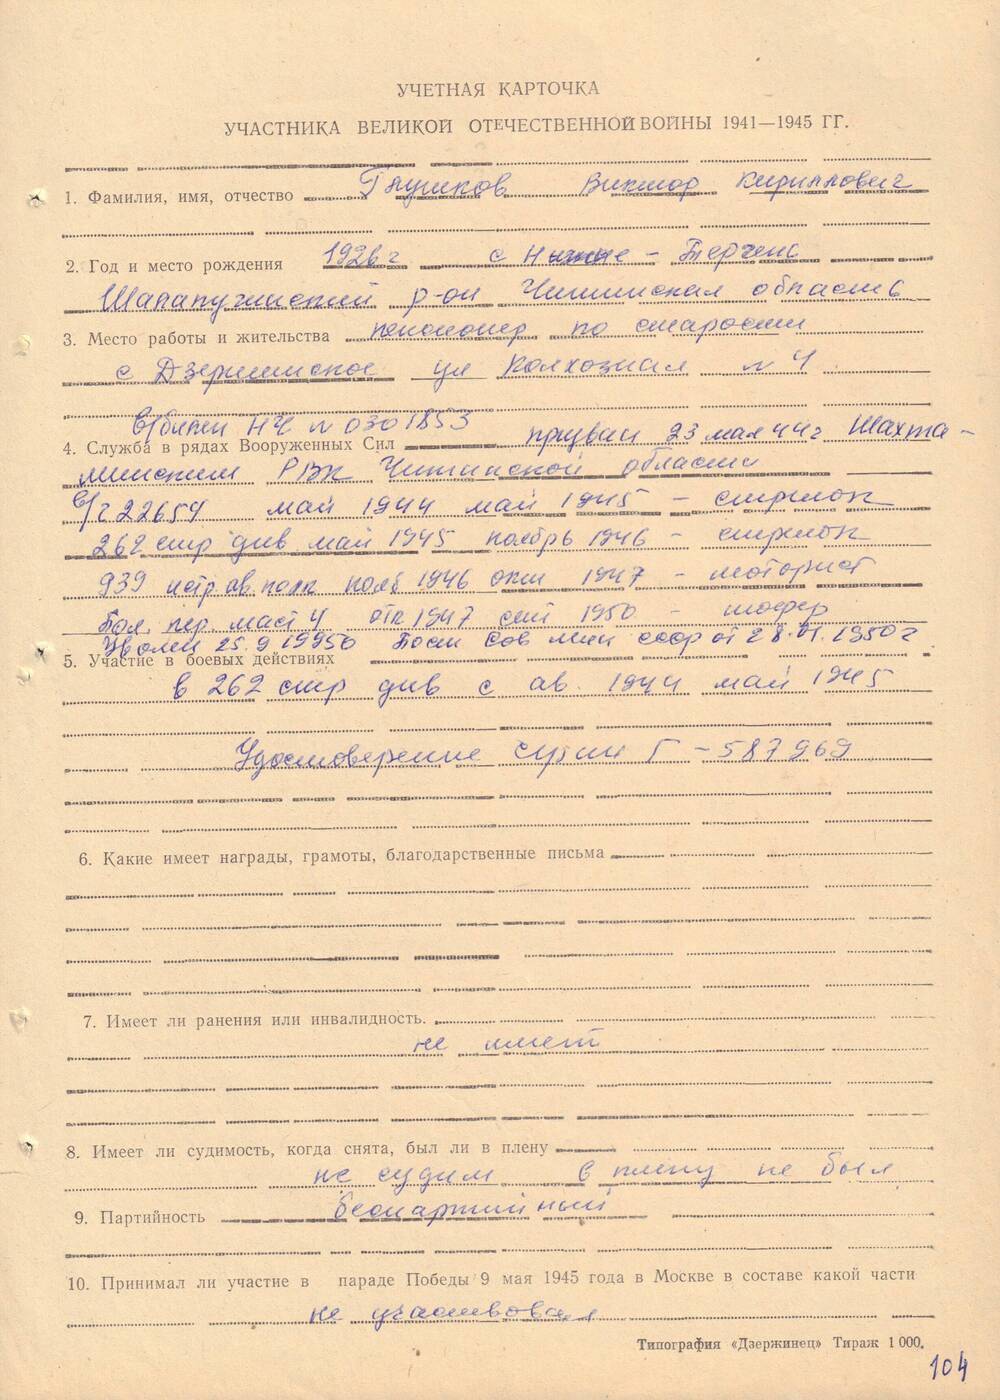 УЧЕТНАЯ КАРТОЧКА
УЧАСТНИКА ВЕЛИКОЙ ОТЕЧЕСТВЕННОЙ ВОЙНЫ 1941—1945 ГГ.
1. Фамилия, имя, отчество Глушков Виктор Кириллович
2. Год и место рождения 1926 г с Нижне-Терчень
Шалапугинский р-он Читинская область
3. Место работы и жительства пенсионер по старости
с Дзержинское ул Колхозная №4
в/билет НЧ №0301853
4. Служба в рядах Вооруженных Сил призван 23 мая 44 г Шахта-
минским РВК Читинской области
в/ч 22654 май 1944 май 1945 - стрелок
262 стр див май 1945 ноябрь 1946 - стрелок
939 истр. ав. полк нояб 1946 окт 1947 - моторист
пер. маст 4 окт 1947 сент 1950 - шофер
Уволен 25.9 19950 Сов мин ссср от 28.01.1950 г
5. Участие в боевых действиях
в 262 стр див с ав. 1944 май 1945
Удостоверение серии Г - 587969
6. Какие имеет награды, грамоты, благодарственные письма
7. Имеет ли ранения или инвалидность.
не имеет
8. Имеет ли судимость, когда снята, был ли в плену
не судим в плену не был
9. Партийность беспартийный
10. Принимал ли участие в параде Победы 9 мая 1945 года в Москве в составе какой части
не участвовал
Типография «Дзержинец» Тираж 1 000.
104